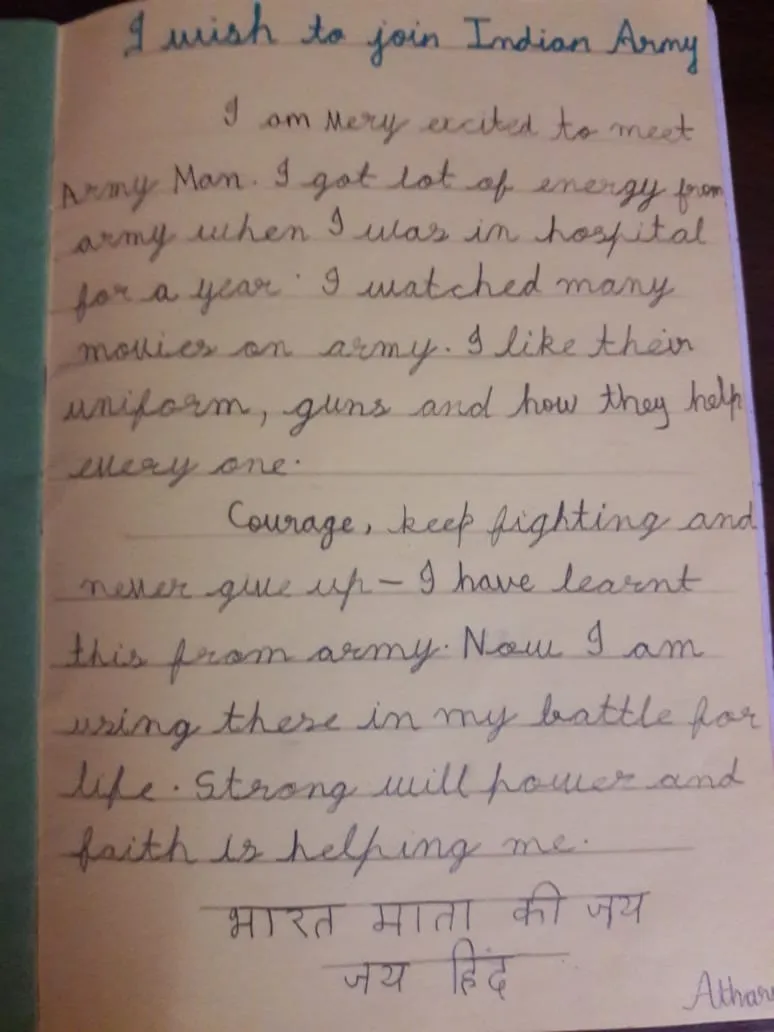 I wish to join Indian Army
I am very excited to meet
Army Man. I got lot of energy from
army when I was in hospital
for a year. I watched many
movies on army. I like their
uniform, guns and how they help
every one.
Courage, keep fighting and
never give up – I have learnt
this from army. Now I am
using these in my battle for
life. Strong will power and
faith is helping me.
भारत माता की जय
जय हिंद